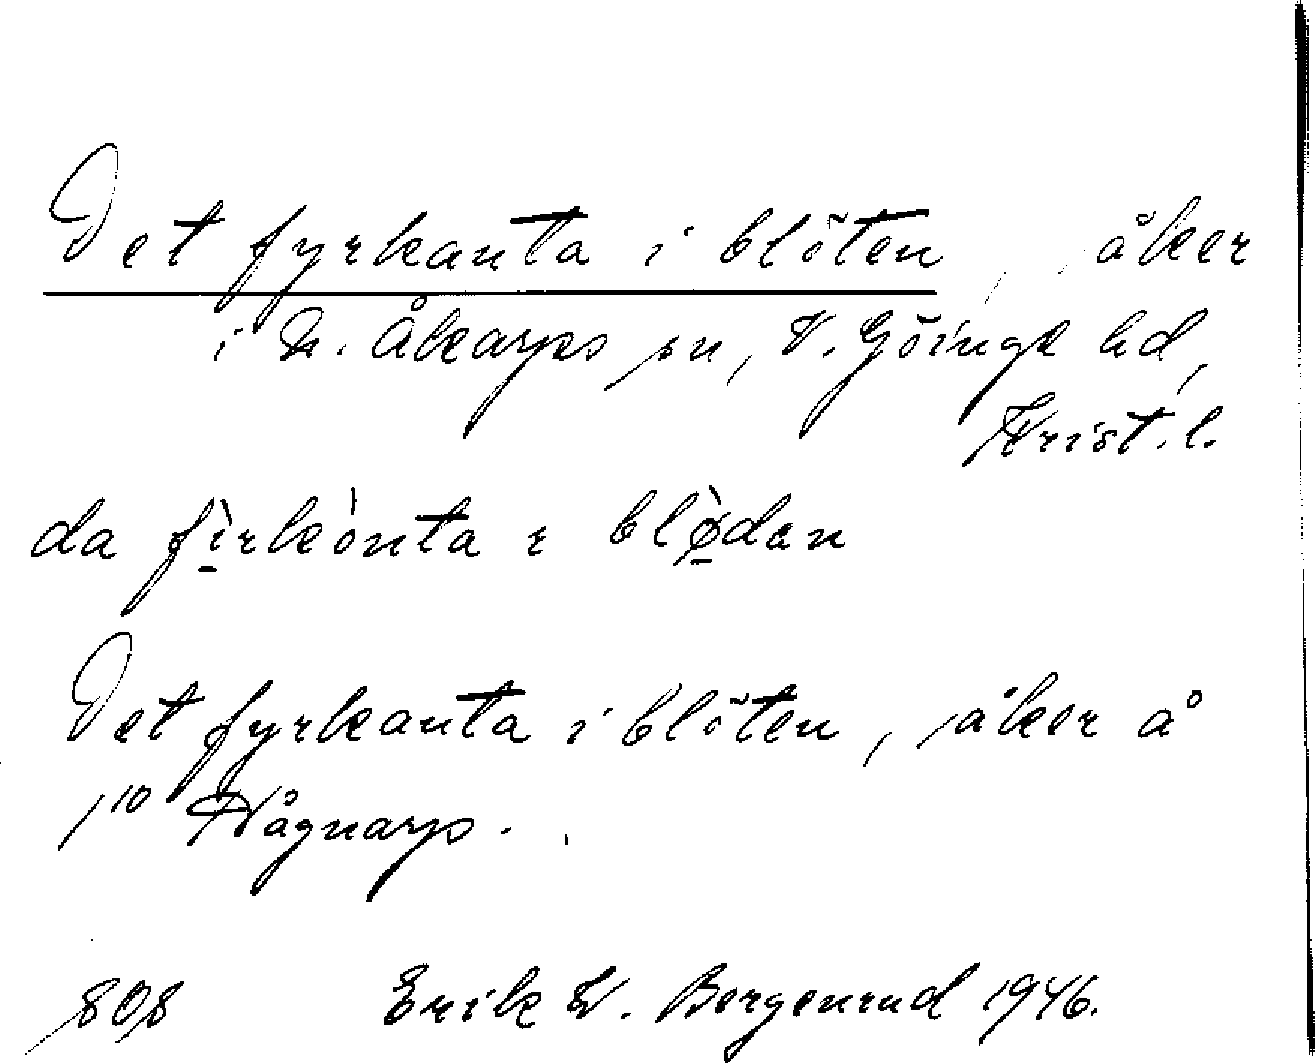 Det fyrkanta i blöten, åker
i N. Åkarps sn, V. Göinge hd,
Krist. l.
da fìrkònta ɪ blø̀dan
Det fyrkanta i blöten, åker å
1¹⁰ Vågnarp.
808 Erik W. Bergenrud 1946.